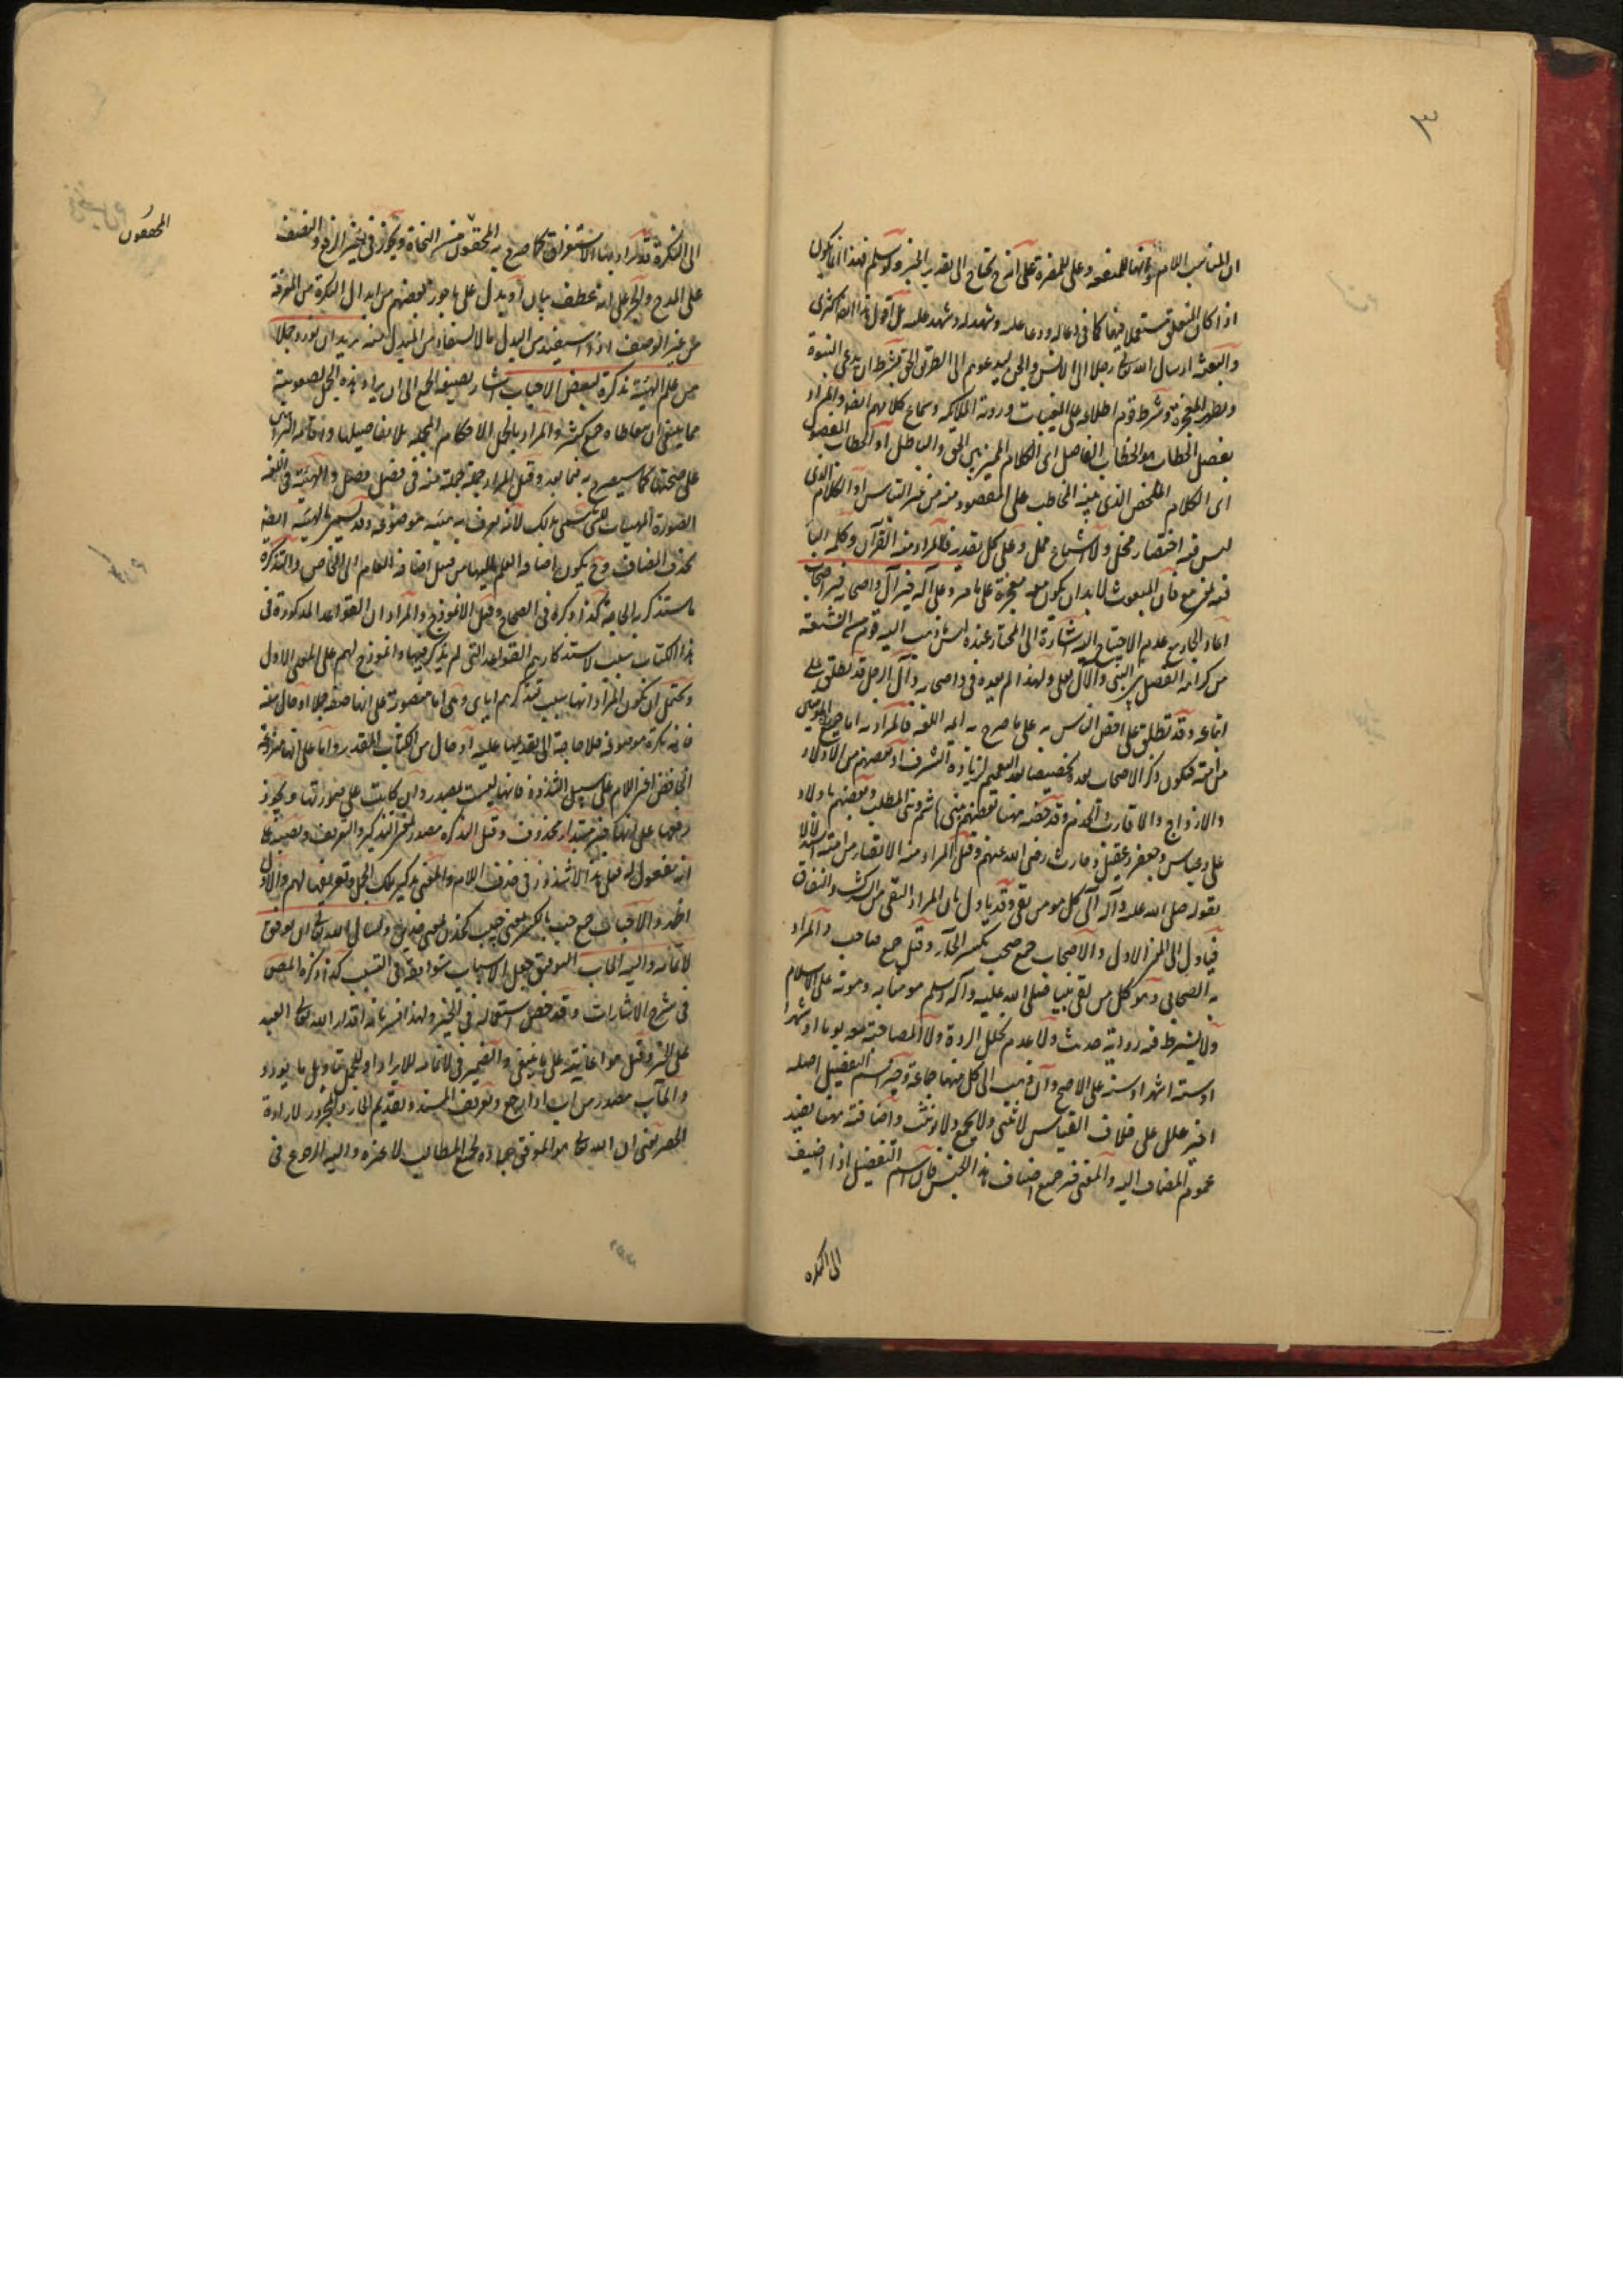 ٣
ان المناسب اللام فانها للمنفعه وعلى للمضرة على انه يحتاج الى تقدير الخبر ولو سلم فهذا انما يكون
اذا كان المتعلق مستعملا فيهما كما في دعا له ودعا عليه وشهد له وشهد عليه بل اقول هذا ايضا اكثرى
والبعثه ارسال الله تعالى رجلا الى الانس والجن ليدعوهم الى الطريق الحق بشرط ان يدعى النبوة
ويظهر المعجزة وشرط قوم اطلاعه على المغيبات ورويه الملائكه وسماع كلامهم ايضا والمراد
بفصل الخطاب هو الخطاب الفاصل اى الكلام المميز بين الحق والباطل او الخطاب المفصول
اى الكلام الملخص الذى يبينه المخاطب على المقصود منه من غير التباس او الكلام الذى
ليس فيه اختصار مخل ولا اشباع ممل وعلى كل تقدير فالمراد منه القرآن وكلمه الباء
فيه بمعنى مع فان المبعوث لابد ان يكون معه معجزة على ما مر وعلى آله خير آل واصحابه خير اصحاب
اعاد الجار مع عدم الاحتياج اليه اشارة الى المختار عنده لما ذهب اليه قوم من الشيعه
من كراهه الفصل بين النبى والآل بعلى ولهذا لم يعده فى واصحابه وآل الرجل قد تطلق على
اتباعه وقد تطلق على اخص الناس به على ما صرح به ايمه اللغه فالمراد به اما جميع المومنين
من امته فيكون ذكر الاصحاب بعده تخصيصا بعد التعميم لزيادة الشرف او بعضهم من الاولاد
والازواج والاقارب والخدم وقد خصه مهنا بعضهم ببنى هاشم وبنى المطلب وبعضهم باولاد
على وعباس وجعفر وعقيل وحارث رضى الله عنهم وقيل المراد منه الاتقياء من امته استدلالا
بقوله صلى الله عليه وآله آلى كل مومن تقى وقد ياول بان المراد التقى من الشرك والنفاق
فياول الى المعنى الاول والاصحاب جمع صحب بكسر الحاء وقيل جمع صاحب والمراد
به الصحابى وهو كل من لقى نبينا صلى الله عليه وآله وسلم مومنا به وموته على الاسلام
ولا يشترط فيه روايه حديث ولا عدم تخلل الردة ولا المصاحبة معه يوما او شهرا
او سته اشهر او سنه على الاصح وان ذهب الى كل منها جماعة وخير اسم التفضيل اصله
اخير اعلل على خلاف القياس لا يثنى ولا يجمع ولا يونث واضافته مهنا يفيد
عموم المضاف اليه والمعنى خير جميع اصناف هذا الجنس فان اسم التفضيل اذا اضيف
الى النكرة
الى النكرة قد يراد بها الاستغراق كما صرح به المحققون من النحاة ويجوز فى خير الرفع والنصب
على المدح والجر على انه عطف بيان او بدل على ما جوز بعضهم من ابدال النكرة من المعرفة
من غير الوصف اذا استفيد من البدل ما لا يستفاد من المبدل منه يريد ان يورد جملا
من علم الهيئة تذكرة لبعض الاحباب اشار بصيغه الجمع الى ان ايراد هذه الجمل لصعوبته
مما ينبغى ان يتعاطاه جمع كثير والمراد بالجمل الاحكام المجمله بلا تفاصيلها واقامه البراهين
على صحتها كما سيصرح به فيما بعد وقيل ايراد جملة جملة منه فى فصل فصل والهيئة فى اللغه
الصورة
بحذف المضاف وح يكون اضافه العلم اليها من قبيل اضافه العام الى الخاص والتذكرة
ما يستذكر به الحاجة كذا ذكره فى الصحاح وقيل الانموذج والمراد ان القواعد المذكورة فى
هذا الكتاب سبب لاستذكارهم القواعد التى لم يذكر فيها وانموذج لهم على المعنى الاول
ويحتمل ان يكون المراد انها سبب تذكرهم اياى وهى اما منصوبة على انها صفه جملا او حال منه
فانه نكرة موصوفه فلا حاجة الى تقديمها عليه او حال من الكتاب المقدر واما على انها
على سبيل الشذوذ فانها ليست بمصدر وان كانت على صورتها ويجوز
رفعها على انها خبر مبتداء محذوف وقيل التذكرة مصدر بمعنى التذكير والتعريف ونصبها على
انه مفعول له فعلى هذا لا شذوذ فى حذف اللام والمعنى تذكير تلك الجمل وتعريفها لهم والاول
اظهر والاحباب جمع حب بالكسر بمعنى حبيب كخدن بمعنى خدين واسأل الله تعالى ان يوفق
لاتمامه واليه المآب التوفيق جعل الاسباب متوافقة فى التسبب كذا ذكره المص
فى شرح الاشارات وقد خص استعماله فى الخير ولهذا فسر بانه اقدار الله تعالى العبد
على الخير وقيل هو اعانته على ما ينبغى والضمير فى لاتمامه للايراد او للجمل بتاويل ما يورد
والمآب مصدر من آب اذا رجع وتعريف المسند وتقديم الجار والمجرور لارادة
الحصر يعنى ان الله تعالى هو الموفق عباده لجميع المطالب لا غيره واليه الرجوع فى
المحققون